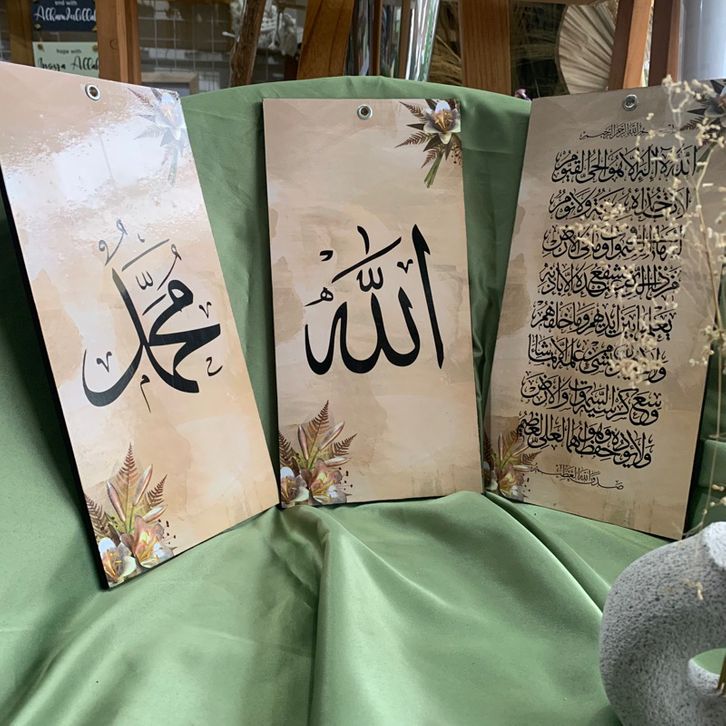 end with
Alhamdulillah
hope with
Insya Allah
محمد
الله
بسم الله الرحمن الرحيم
الله لا إله إلا هو الحي القيوم
لا تأخذه سنة ولا نوم
له ما في السموات وما في الأرض
من ذا الذي يشفع عنده إلا بإذنه
يعلم ما بين أيديهم وما خلفهم
ولا يحيطون بشيء من علمه إلا بما شاء
وسع كرسيه السموات والأرض
ولا يؤوده حفظهما وهو العلي العظيم
صدق الله العظيم